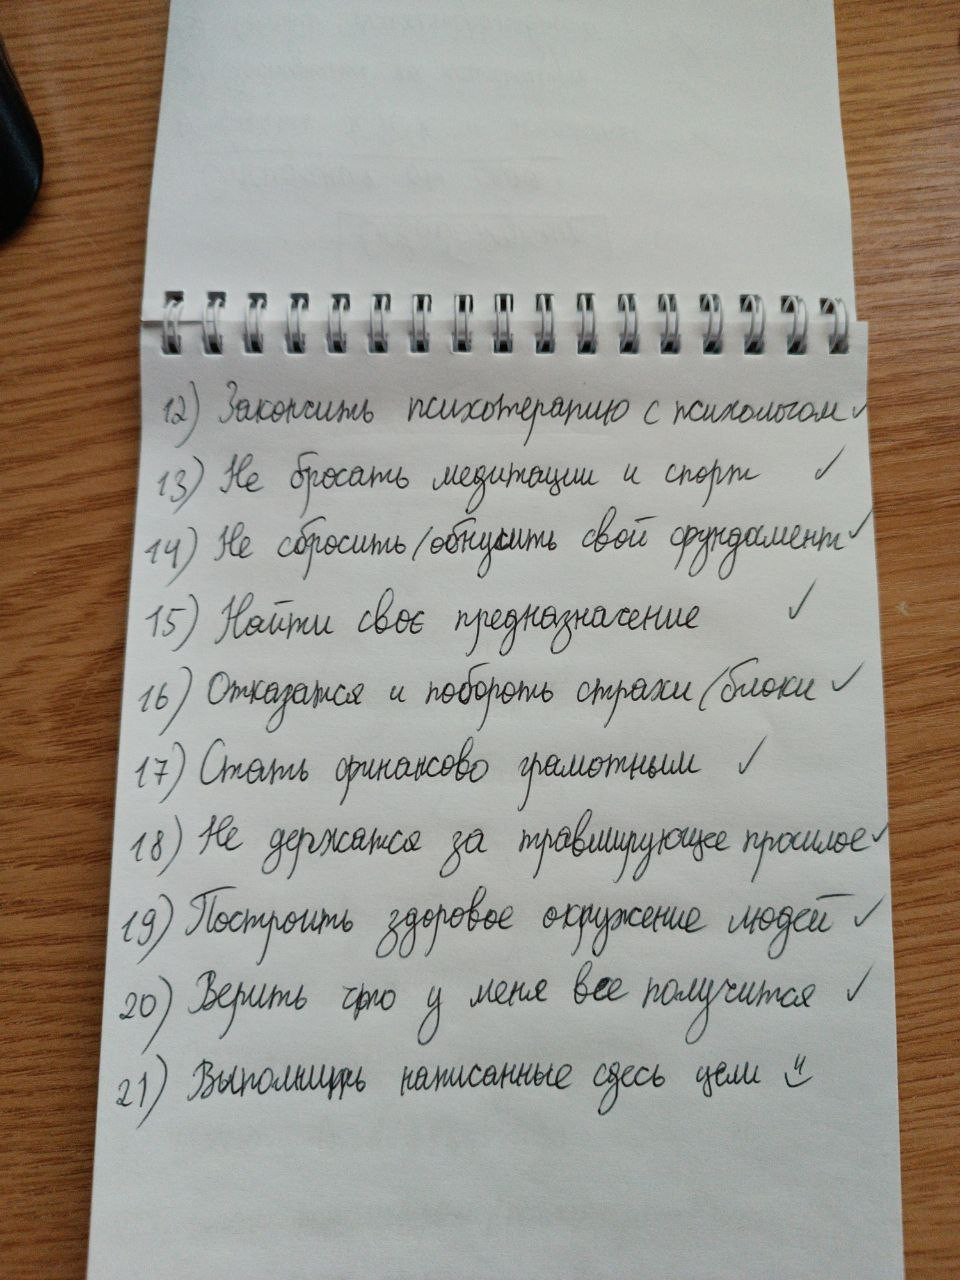 12) Закончить психотерапию с психологом ✓
13) Не бросать медитации и спорт ✓
14) Не сбросить/обнулить свой фундамент ✓
15) Найти своє предназначение ✓
16) Отказатся и побороть страхи/блоки ✓
17) Стать финансово грамотным ✓
18) Не держатся за травмирующее прошлое ✓
19) Построить здоровое окружение людей ✓
20) Верить что у меня все получится ✓
21) Выполнить написанные здесь цели